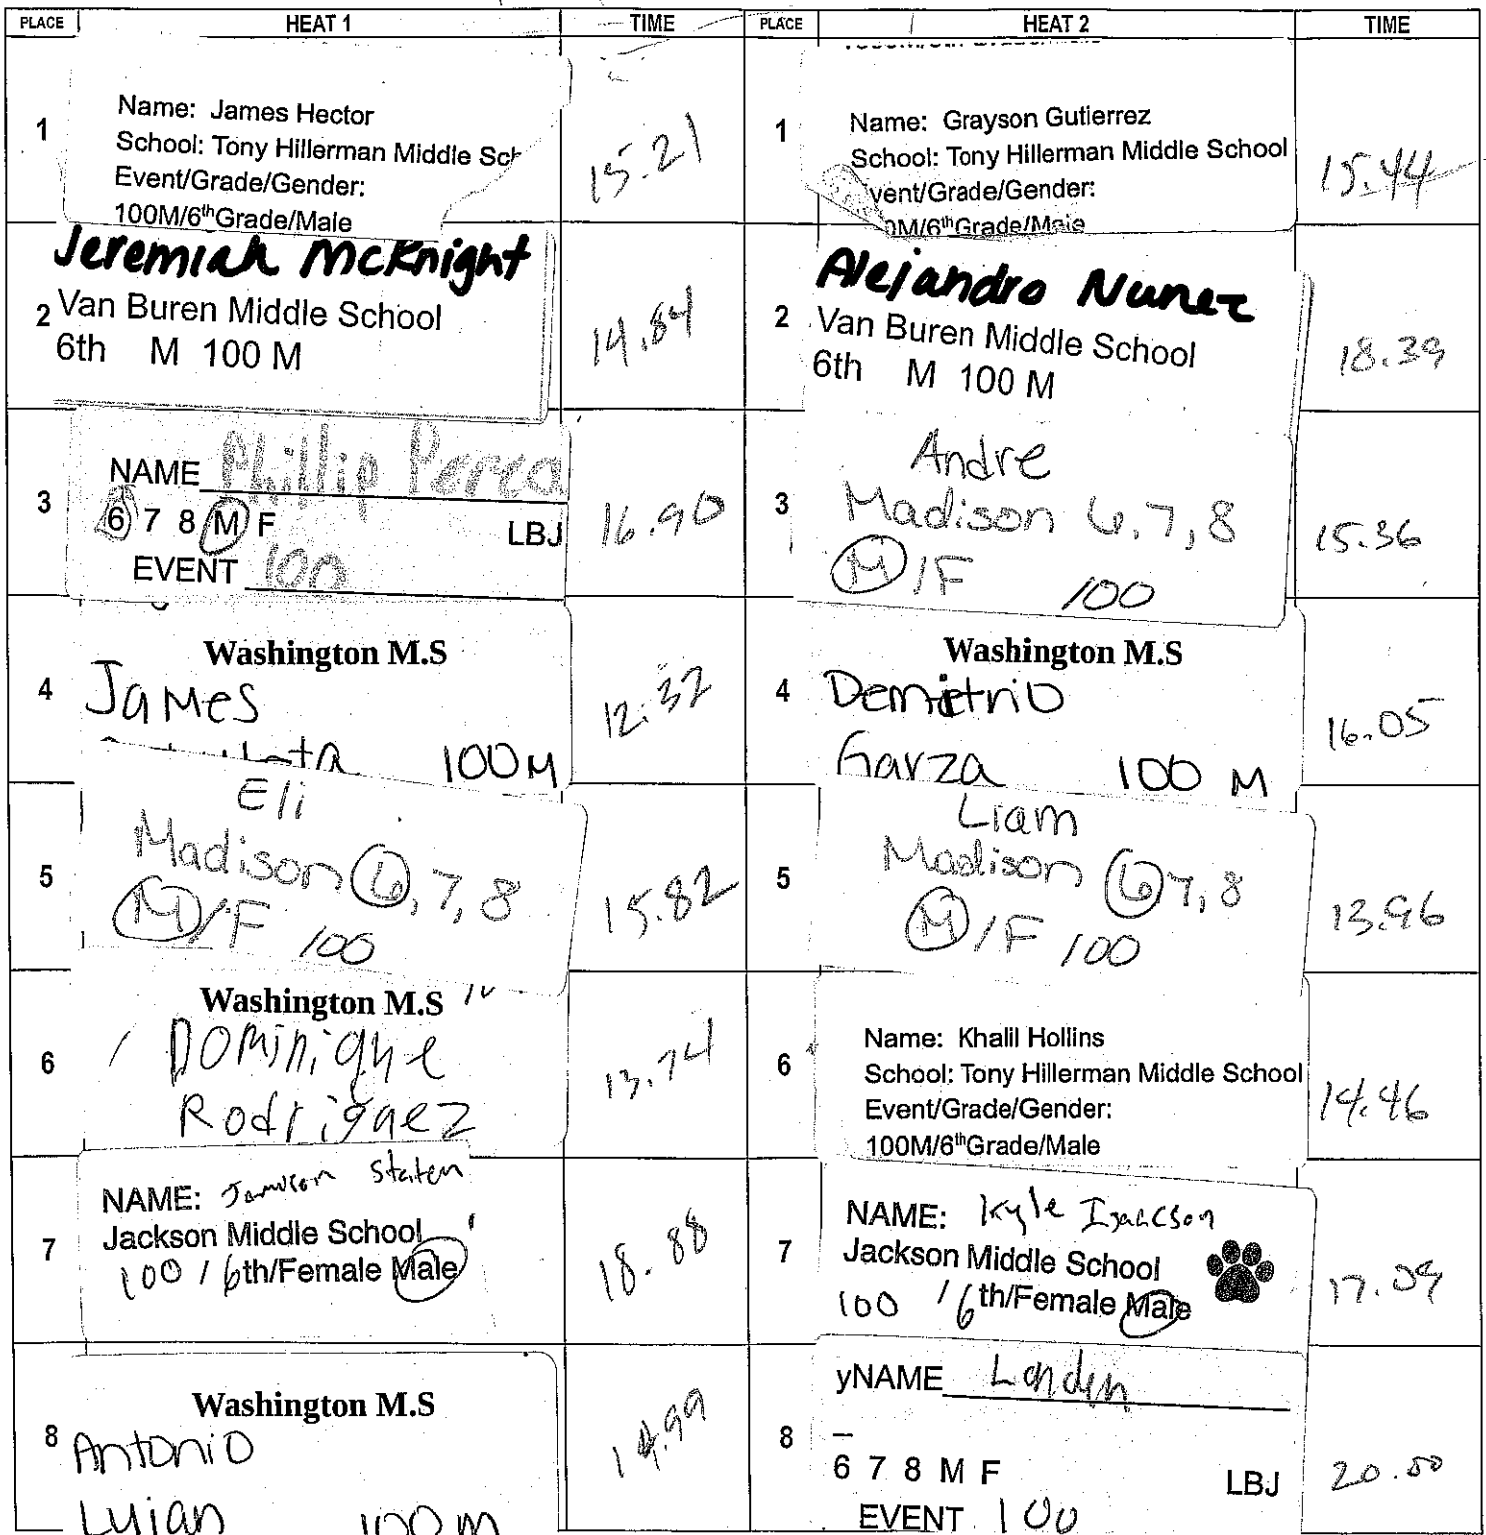 PLACE HEAT 1 TIME PLACE HEAT 2 TIME
1
Name: James Hector
School: Tony Hillerman Middle Sch
Event/Grade/Gender:
100M/6thGrade/Male
15.21
1
Name: Grayson Gutierrez
School: Tony Hillerman Middle School
vent/Grade/Gender:
0M/6thGrade/Male
15.44
2
Jeremiah McKnight
Van Buren Middle School
6th M 100 M
14.84
2
Alejandro Nunez
Van Buren Middle School
6th M 100 M
18.39
3
NAME Phillip Perea
6 7 8 M F LBJ
EVENT 100
16.90
3
Andre
Madison 6,7,8
M/F 100
15.36
4
Washington M.S
James
100M
12.32
4
Washington M.S
Demetrio
Garza 100 M
16.05
5
Eli
Madison 6,7,8
M/F 100
15.82
5
Liam
Madison 6 7,8
M/F 100
13.96
6
Washington M.S
Dominique
Rodriguez
13.74
6
Name: Khalil Hollins
School: Tony Hillerman Middle School
Event/Grade/Gender:
100M/6thGrade/Male
14.46
7
NAME: Jamison Staten
Jackson Middle School
100 / 6th/Female Male
18.88
7
NAME: Kyle Isaacson
Jackson Middle School
100 / 6th/Female Male
17.09
8
Washington M.S
Antonio
Lujan 100 M
14.99
8
yNAME Landen
6 7 8 M F LBJ
EVENT 100
20.00